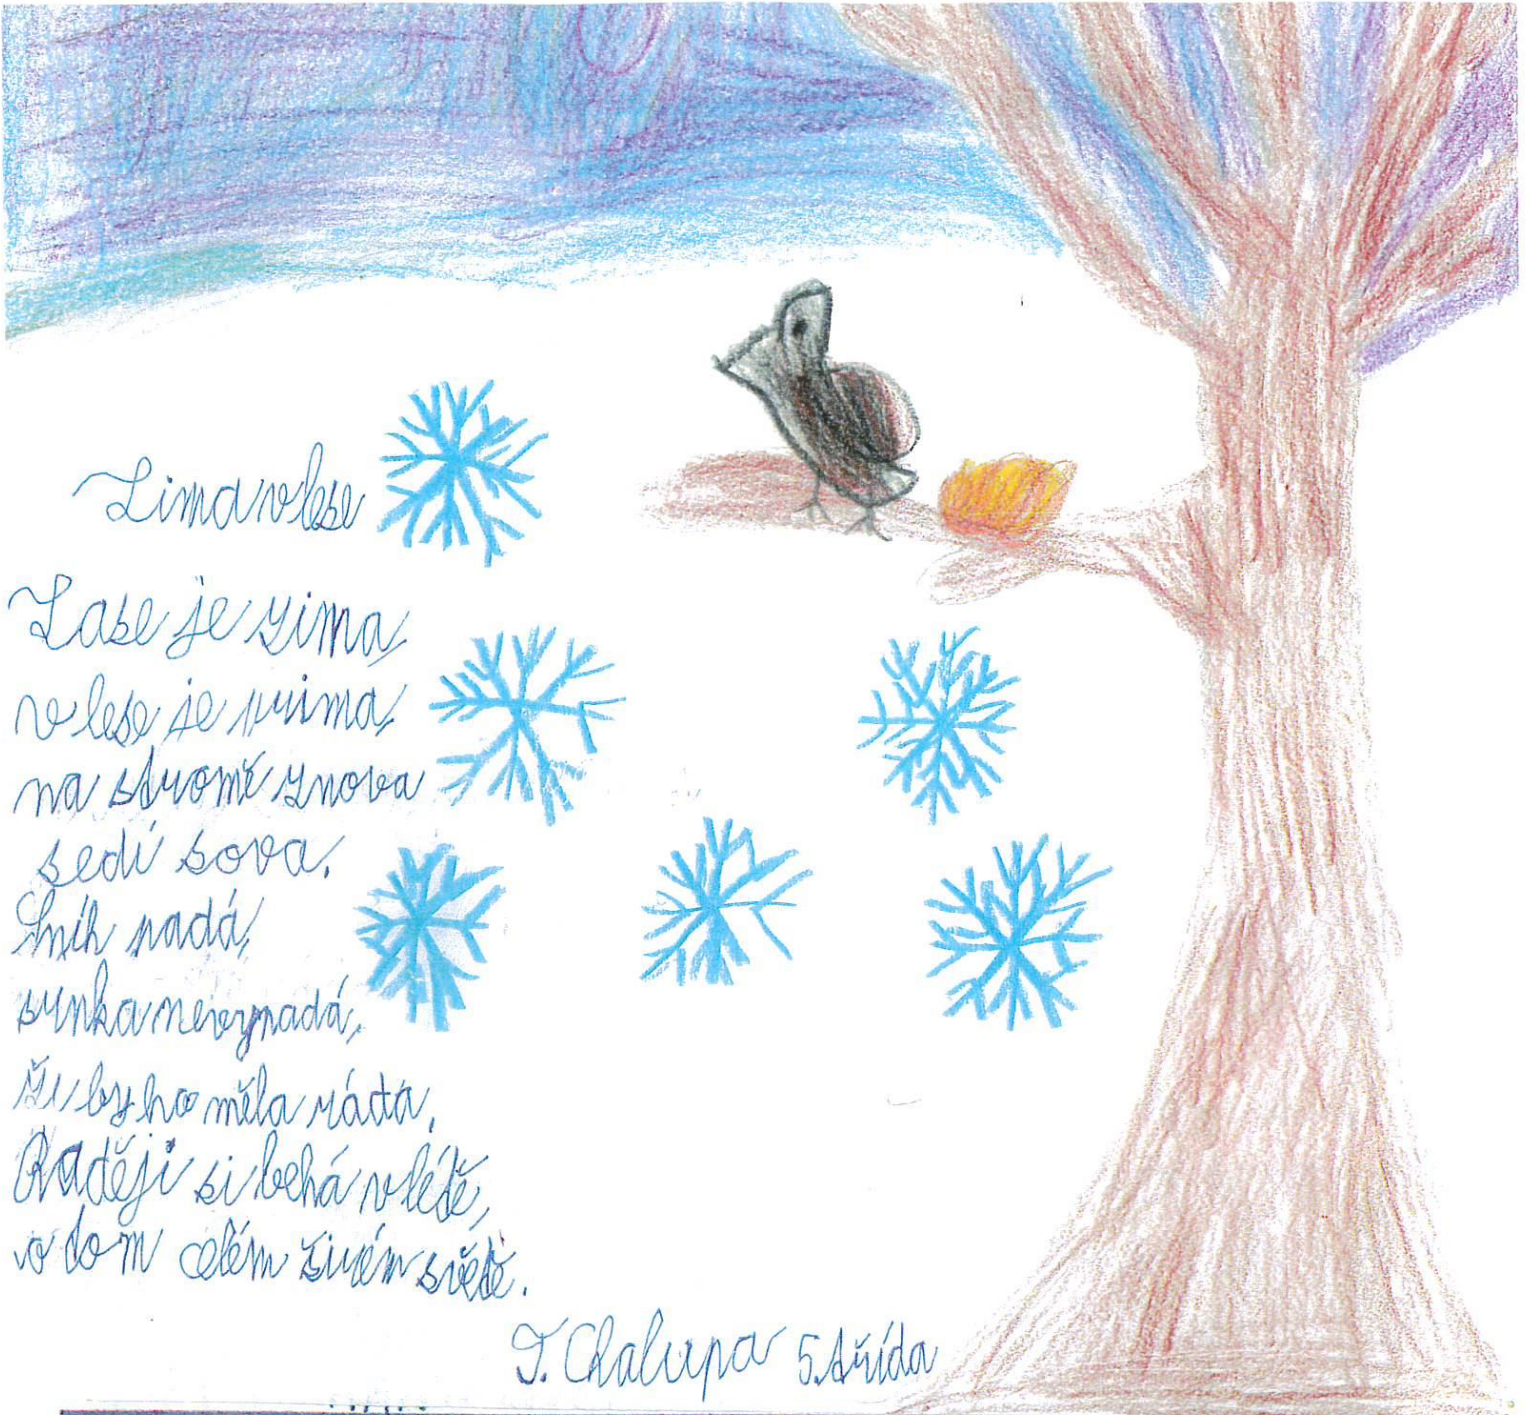 Zima v lese
Zase je zima,
v lese je prima,
na stromě znova
sedí sova.
Sníh padá,
srnka nevypadá,
že by ho měla ráda.
Raději si behá v létě,
v tom celém živém světě.
T. Chalupa 5. třída